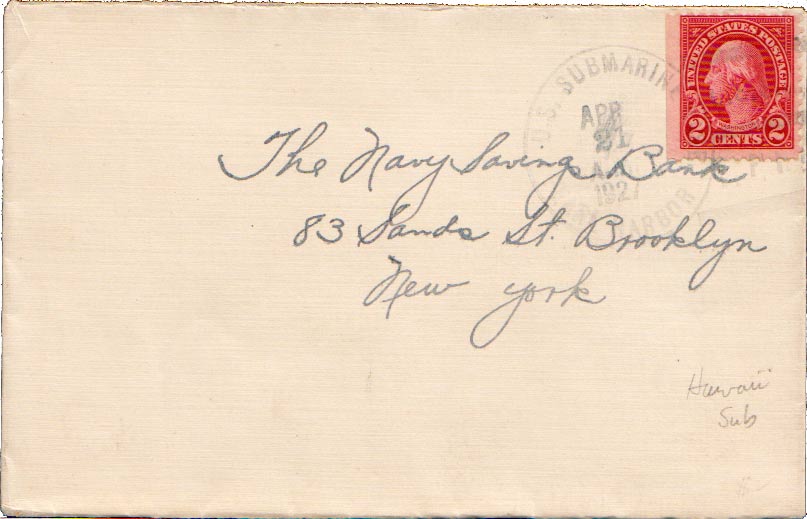 UNITED STATES POSTAGE
WASHINGTON
2 CENTS 2
U.S. SUBMARINE
APR
21
A.M.
1927
PEARL HARBOR
The Navy Savings Bank
83 Sands St. Brooklyn
New York
Hawaii
Sub